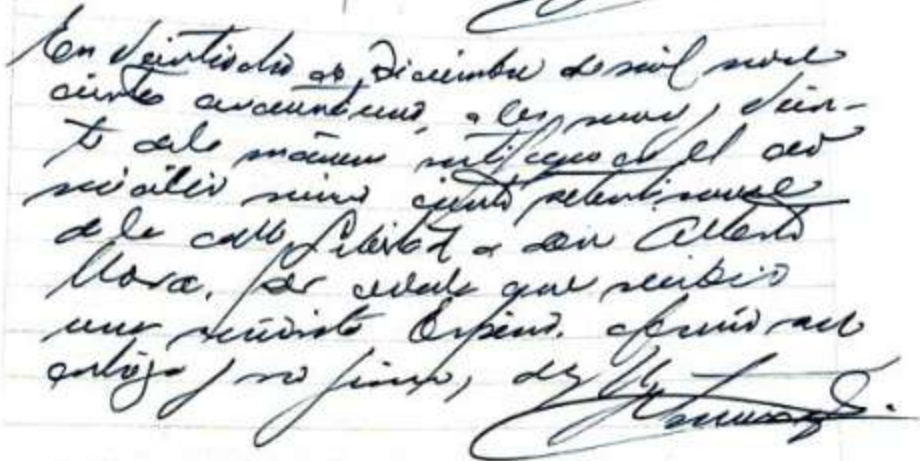 En veintiocho de Diciembre de mil nove
cientos cincuentiuno, a las nueve y vein-
te de la mañana notifiqué en el do
micilio número ciento setentinueve
de la calle Libertad a don Alberto
Mora, por cédula que recibió
una señorita Espino. se
y no firmó, doy fe